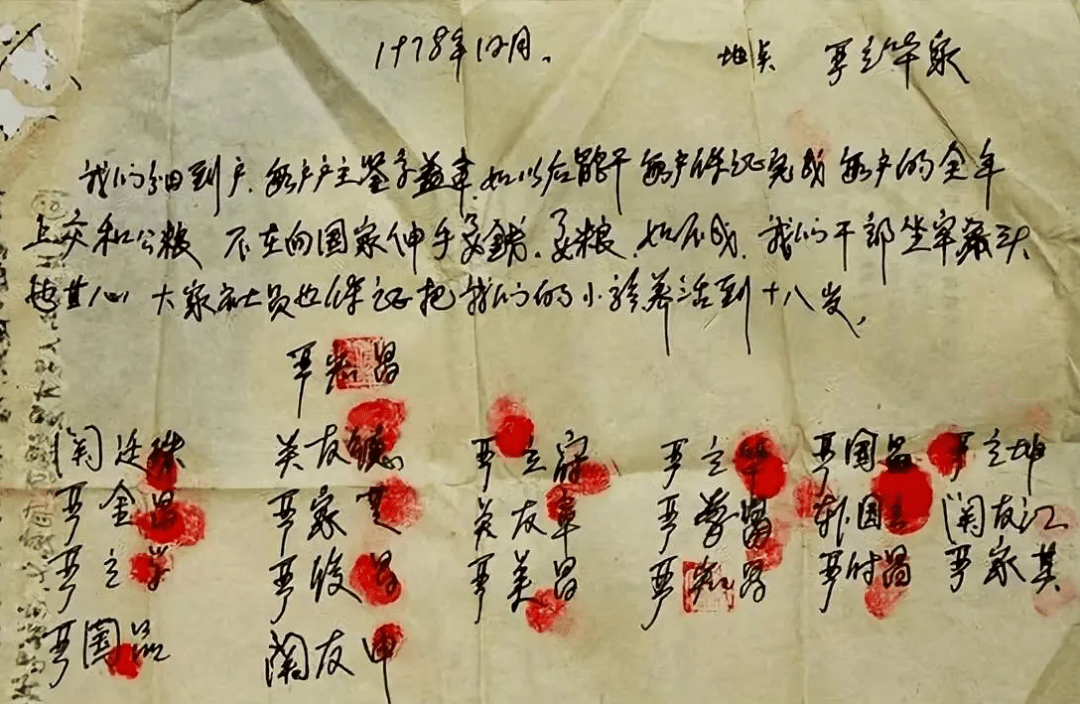 1978年12月。 地点 严立华家
我们分田到户，每户户主签字盖章，如以后能干，每户保证完成每户的全年
上交和公粮 不在向国家伸手要钱、要粮，如不成，我们干部坐牢杀头
也甘心，大家社员也保证把我们的小孩养活到十八岁，
严宏昌
关廷珠 关友德 严立富 严立华 严国昌 严立坤
严金昌 严家芝 关友章 严学昌 韩国云 关友江
严立学 严俊昌 严美昌 严宏昌 严付昌 严家其
严国品 关友申